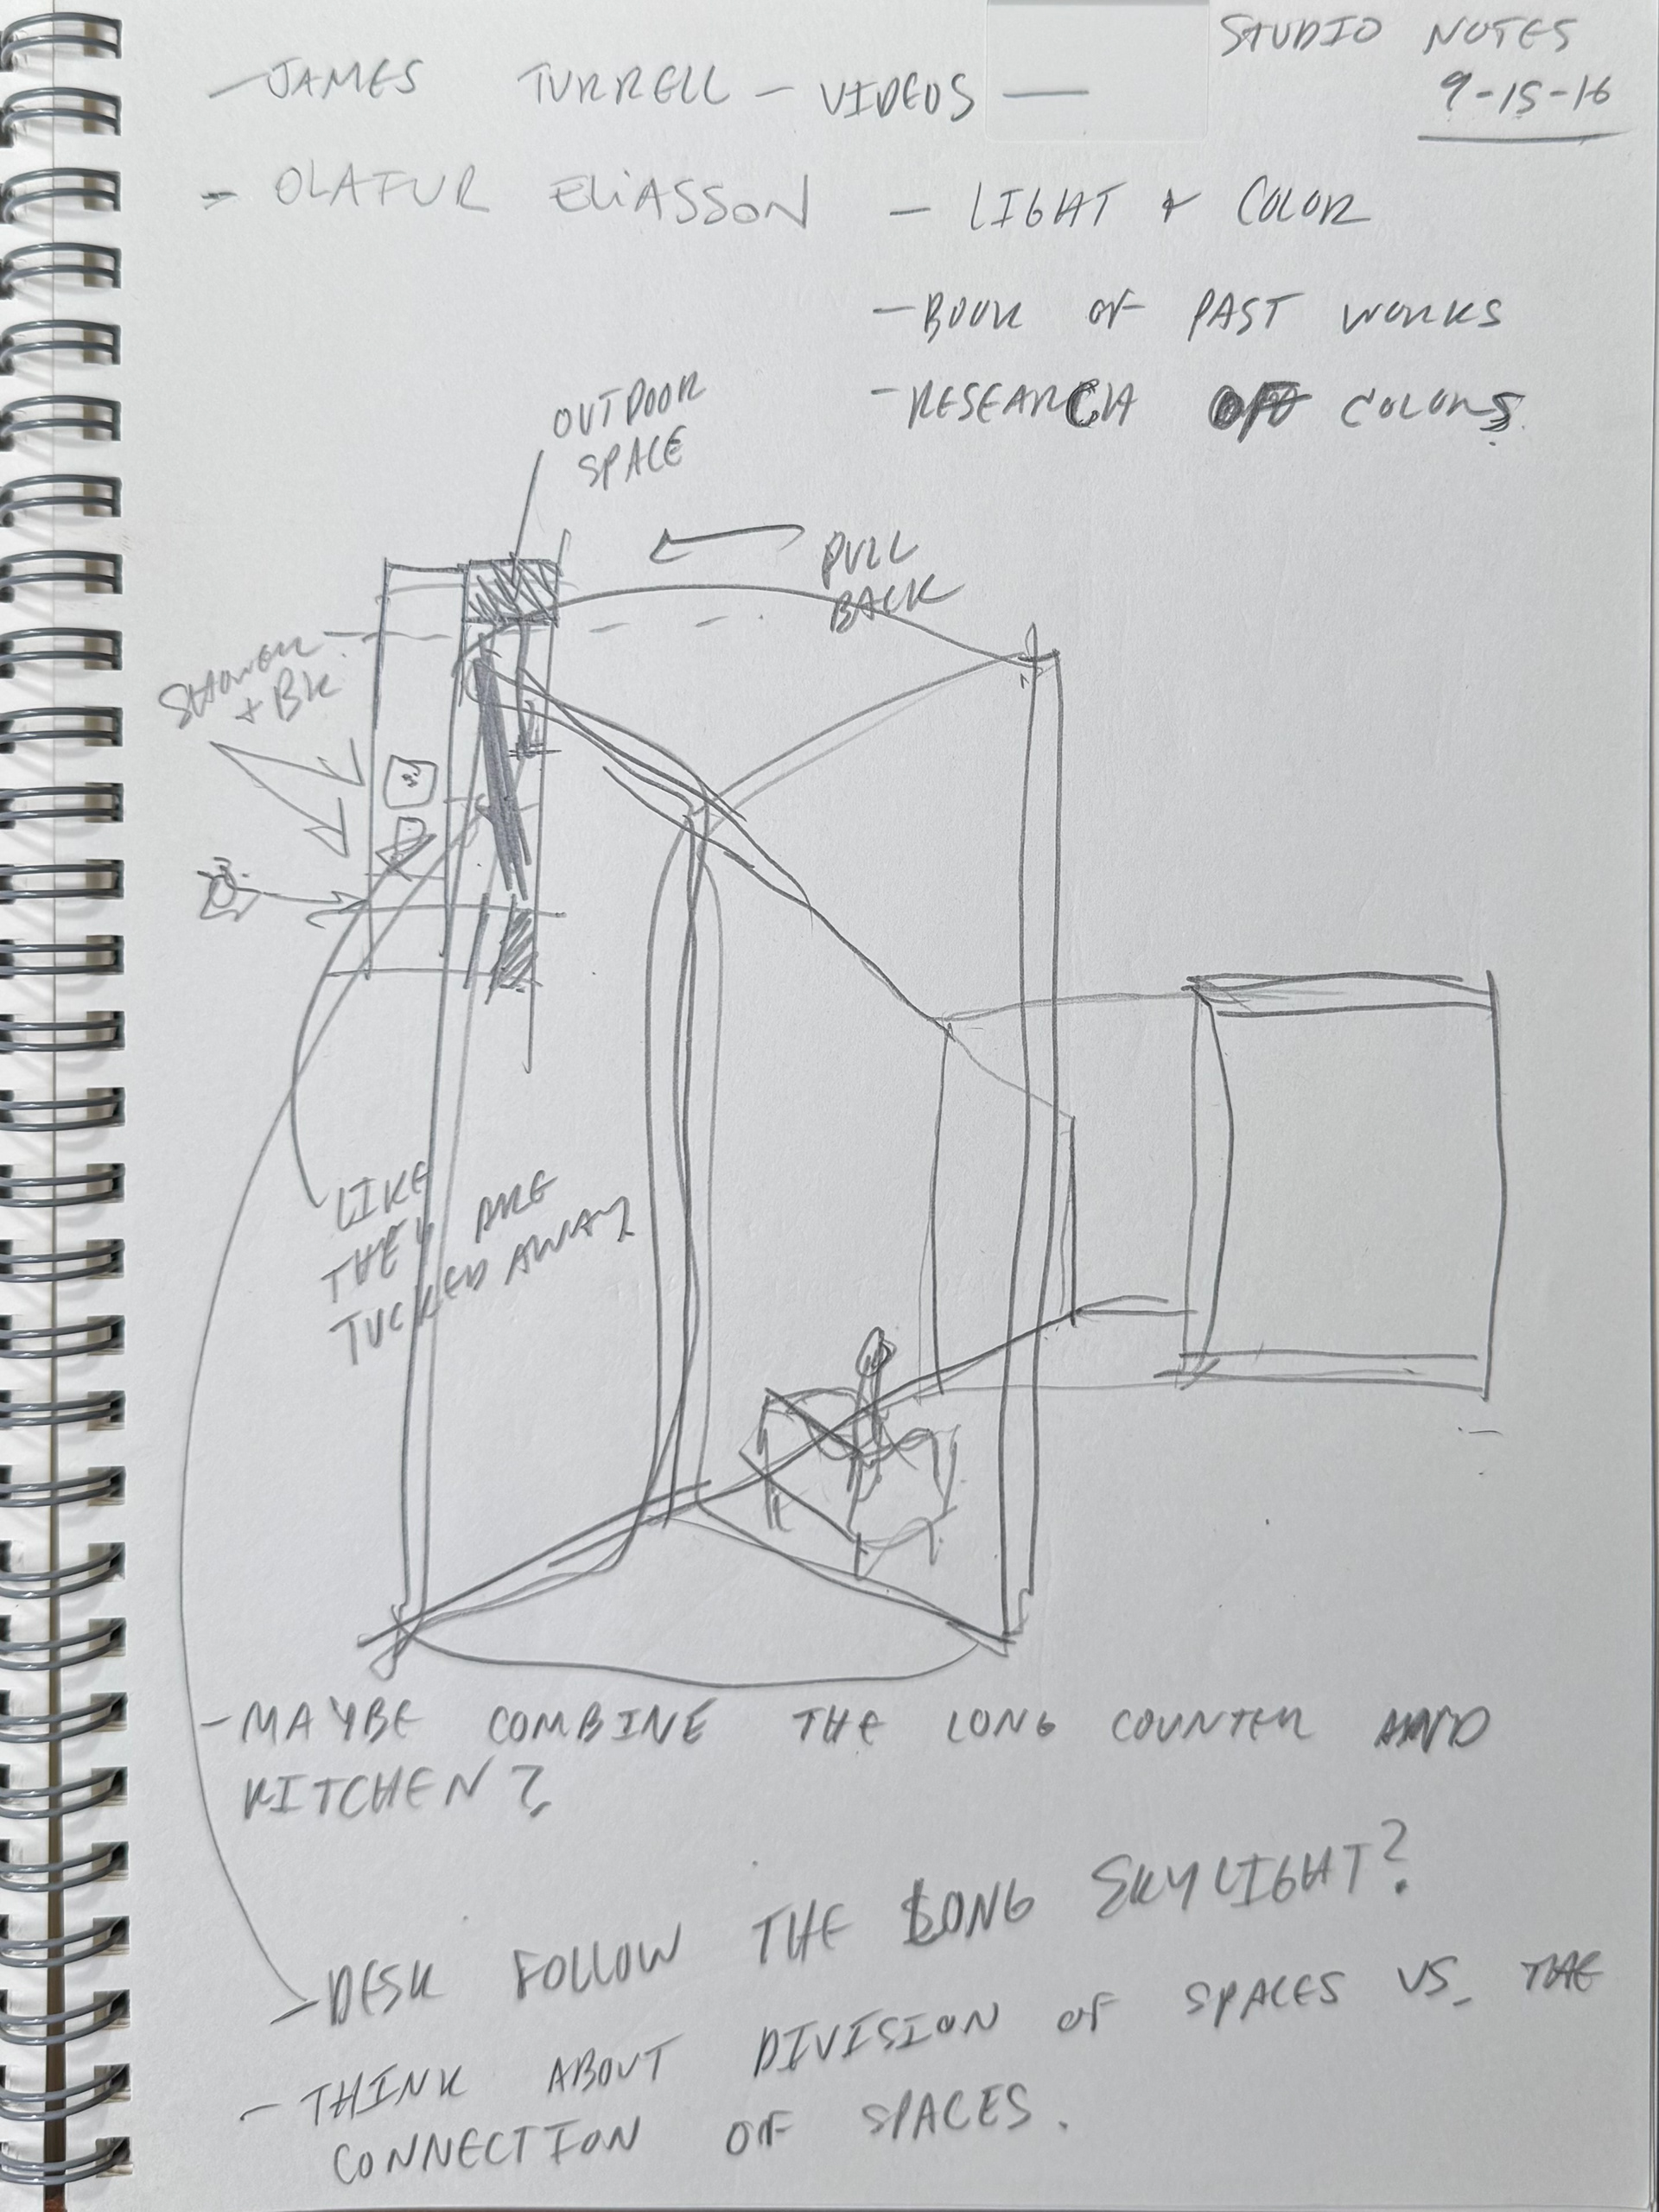 STUDIO NOTES
9-15-16
- JAMES TURRELL - VIDEOS —
- OLAFUR ELiASSON - LIGHT + COLOR
- BOOK OF PAST WORKS
- RESEARCH OF COLORS
OUTDOOR
SPACE
PULL
BACK
SHOWER
+ BR
LIKE
THEY ARE
TUCKED AWAY
- MAYBE COMBINE THE LONG COUNTER AND
KITCHEN?
- DESK FOLLOW THE LONG SKYLIGHT?
- THINK ABOUT DIVISION OF SPACES VS. THE
CONNECTION OF SPACES.